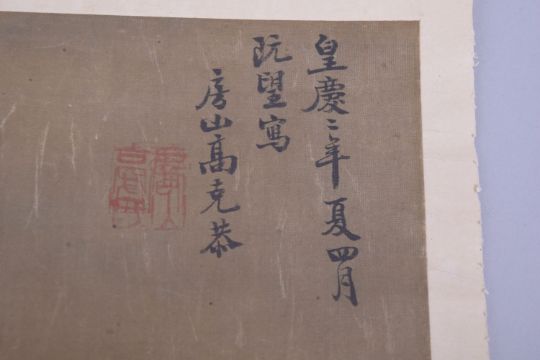 皇慶二年夏四月
既望寫
房山高克恭